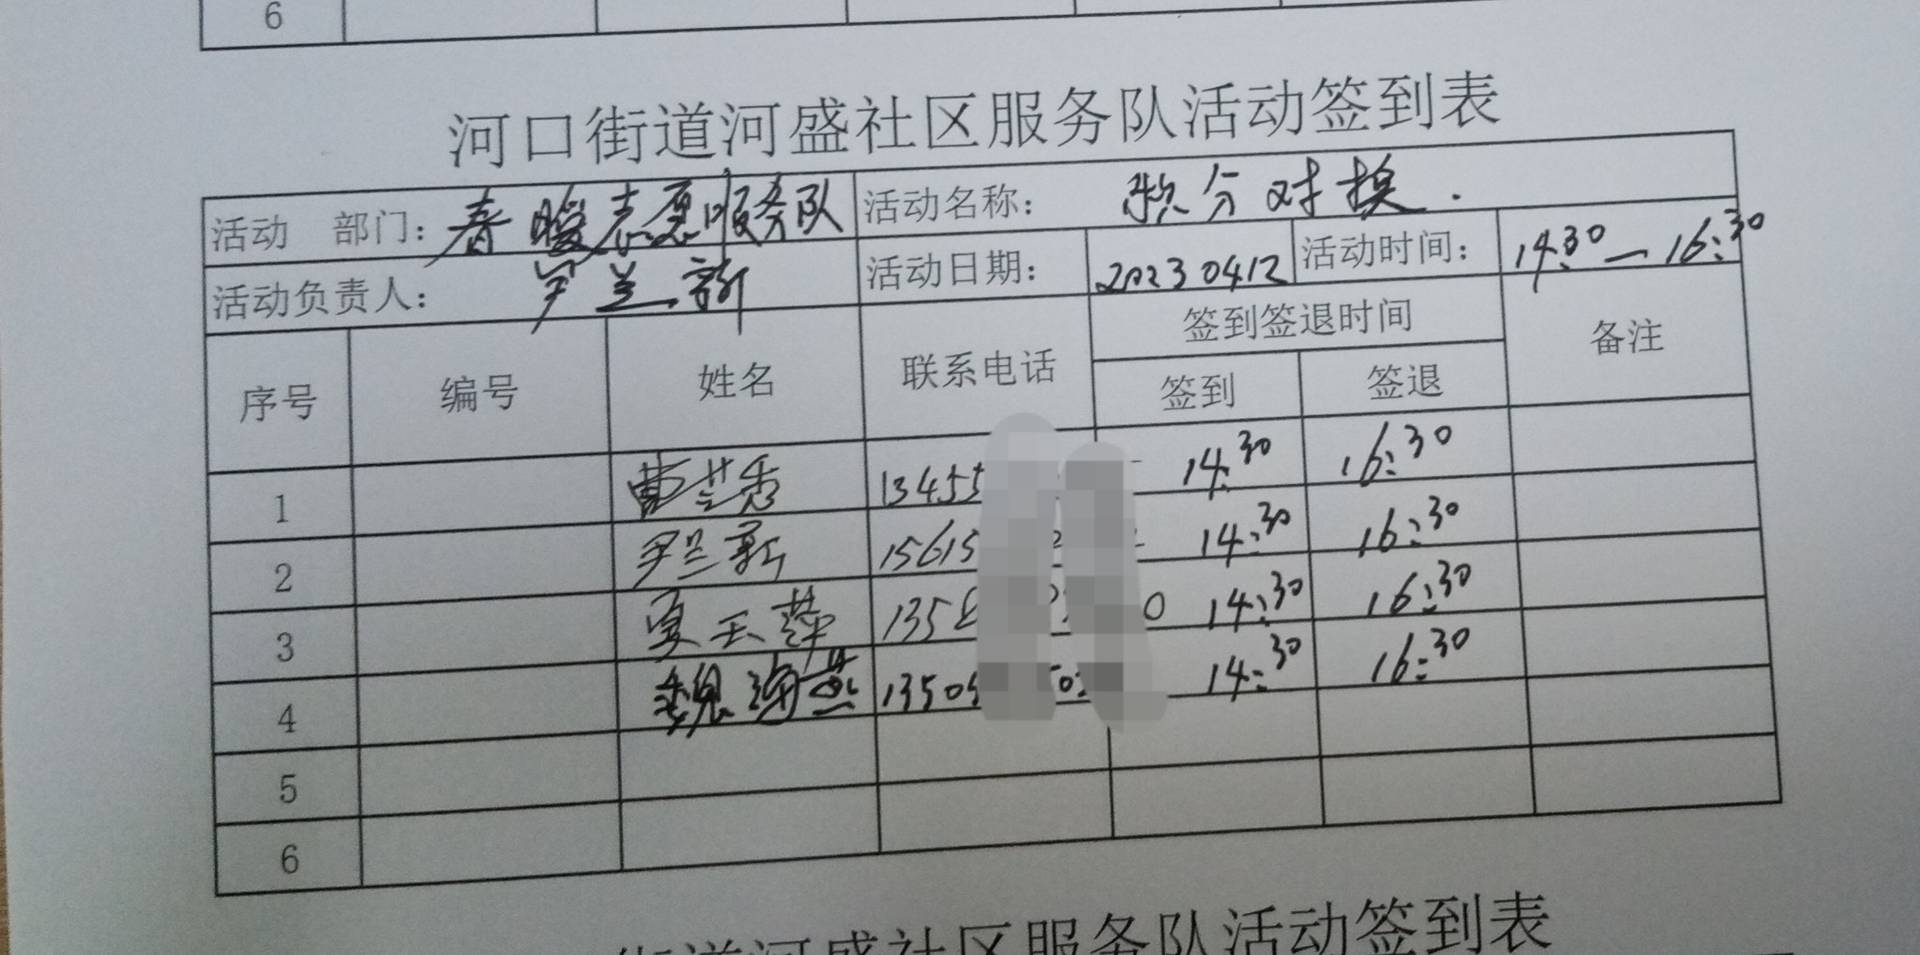 6
河口街道河盛社区服务队活动签到表
活动 部门：春暖志愿服务队 活动名称：积分对换.
活动负责人：罗兰新 活动日期：20230412 活动时间：14:30—16:30
序号 编号 姓名 联系电话 签到签退时间 备注
签到 签退
1 曹兰秀 13455 14:30 16:30
2 罗兰新 15615 14:30 16:30
3 夏玉萍 1358 0 14:30 16:30
4 魏海燕 13505 14:30 16:30
5
6
街道河盛社区服务队活动签到表